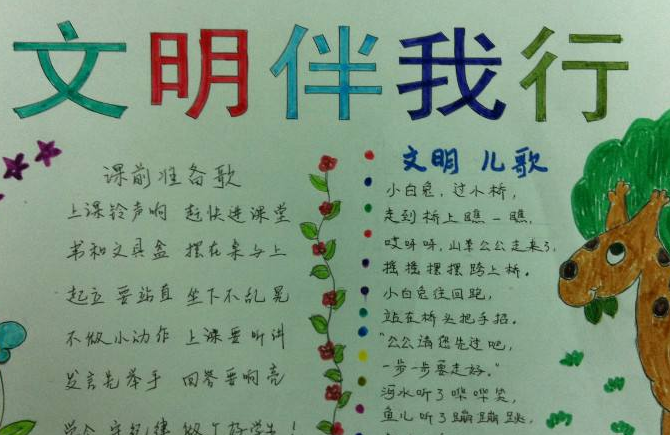 文明伴我行
课前准备歌
上课铃声响 赶快进课堂
书和文具盒 摆在桌与上
起立要站直 坐下不乱晃
不做小动作 上课要听讲
发言先举手 回答要响亮
学会守纪律 做个好学生!
文明儿歌
小白兔,过小桥,
走到桥上瞧一瞧,
哎呀呀,山羊公公走来了,
摇摇摆摆跨上桥。
小白兔往回跑,
站在桥头把手招。
"公公请您先过吧,
一步一步要走好。"
河水听了哗哗笑,
鱼儿听了蹦蹦跳,